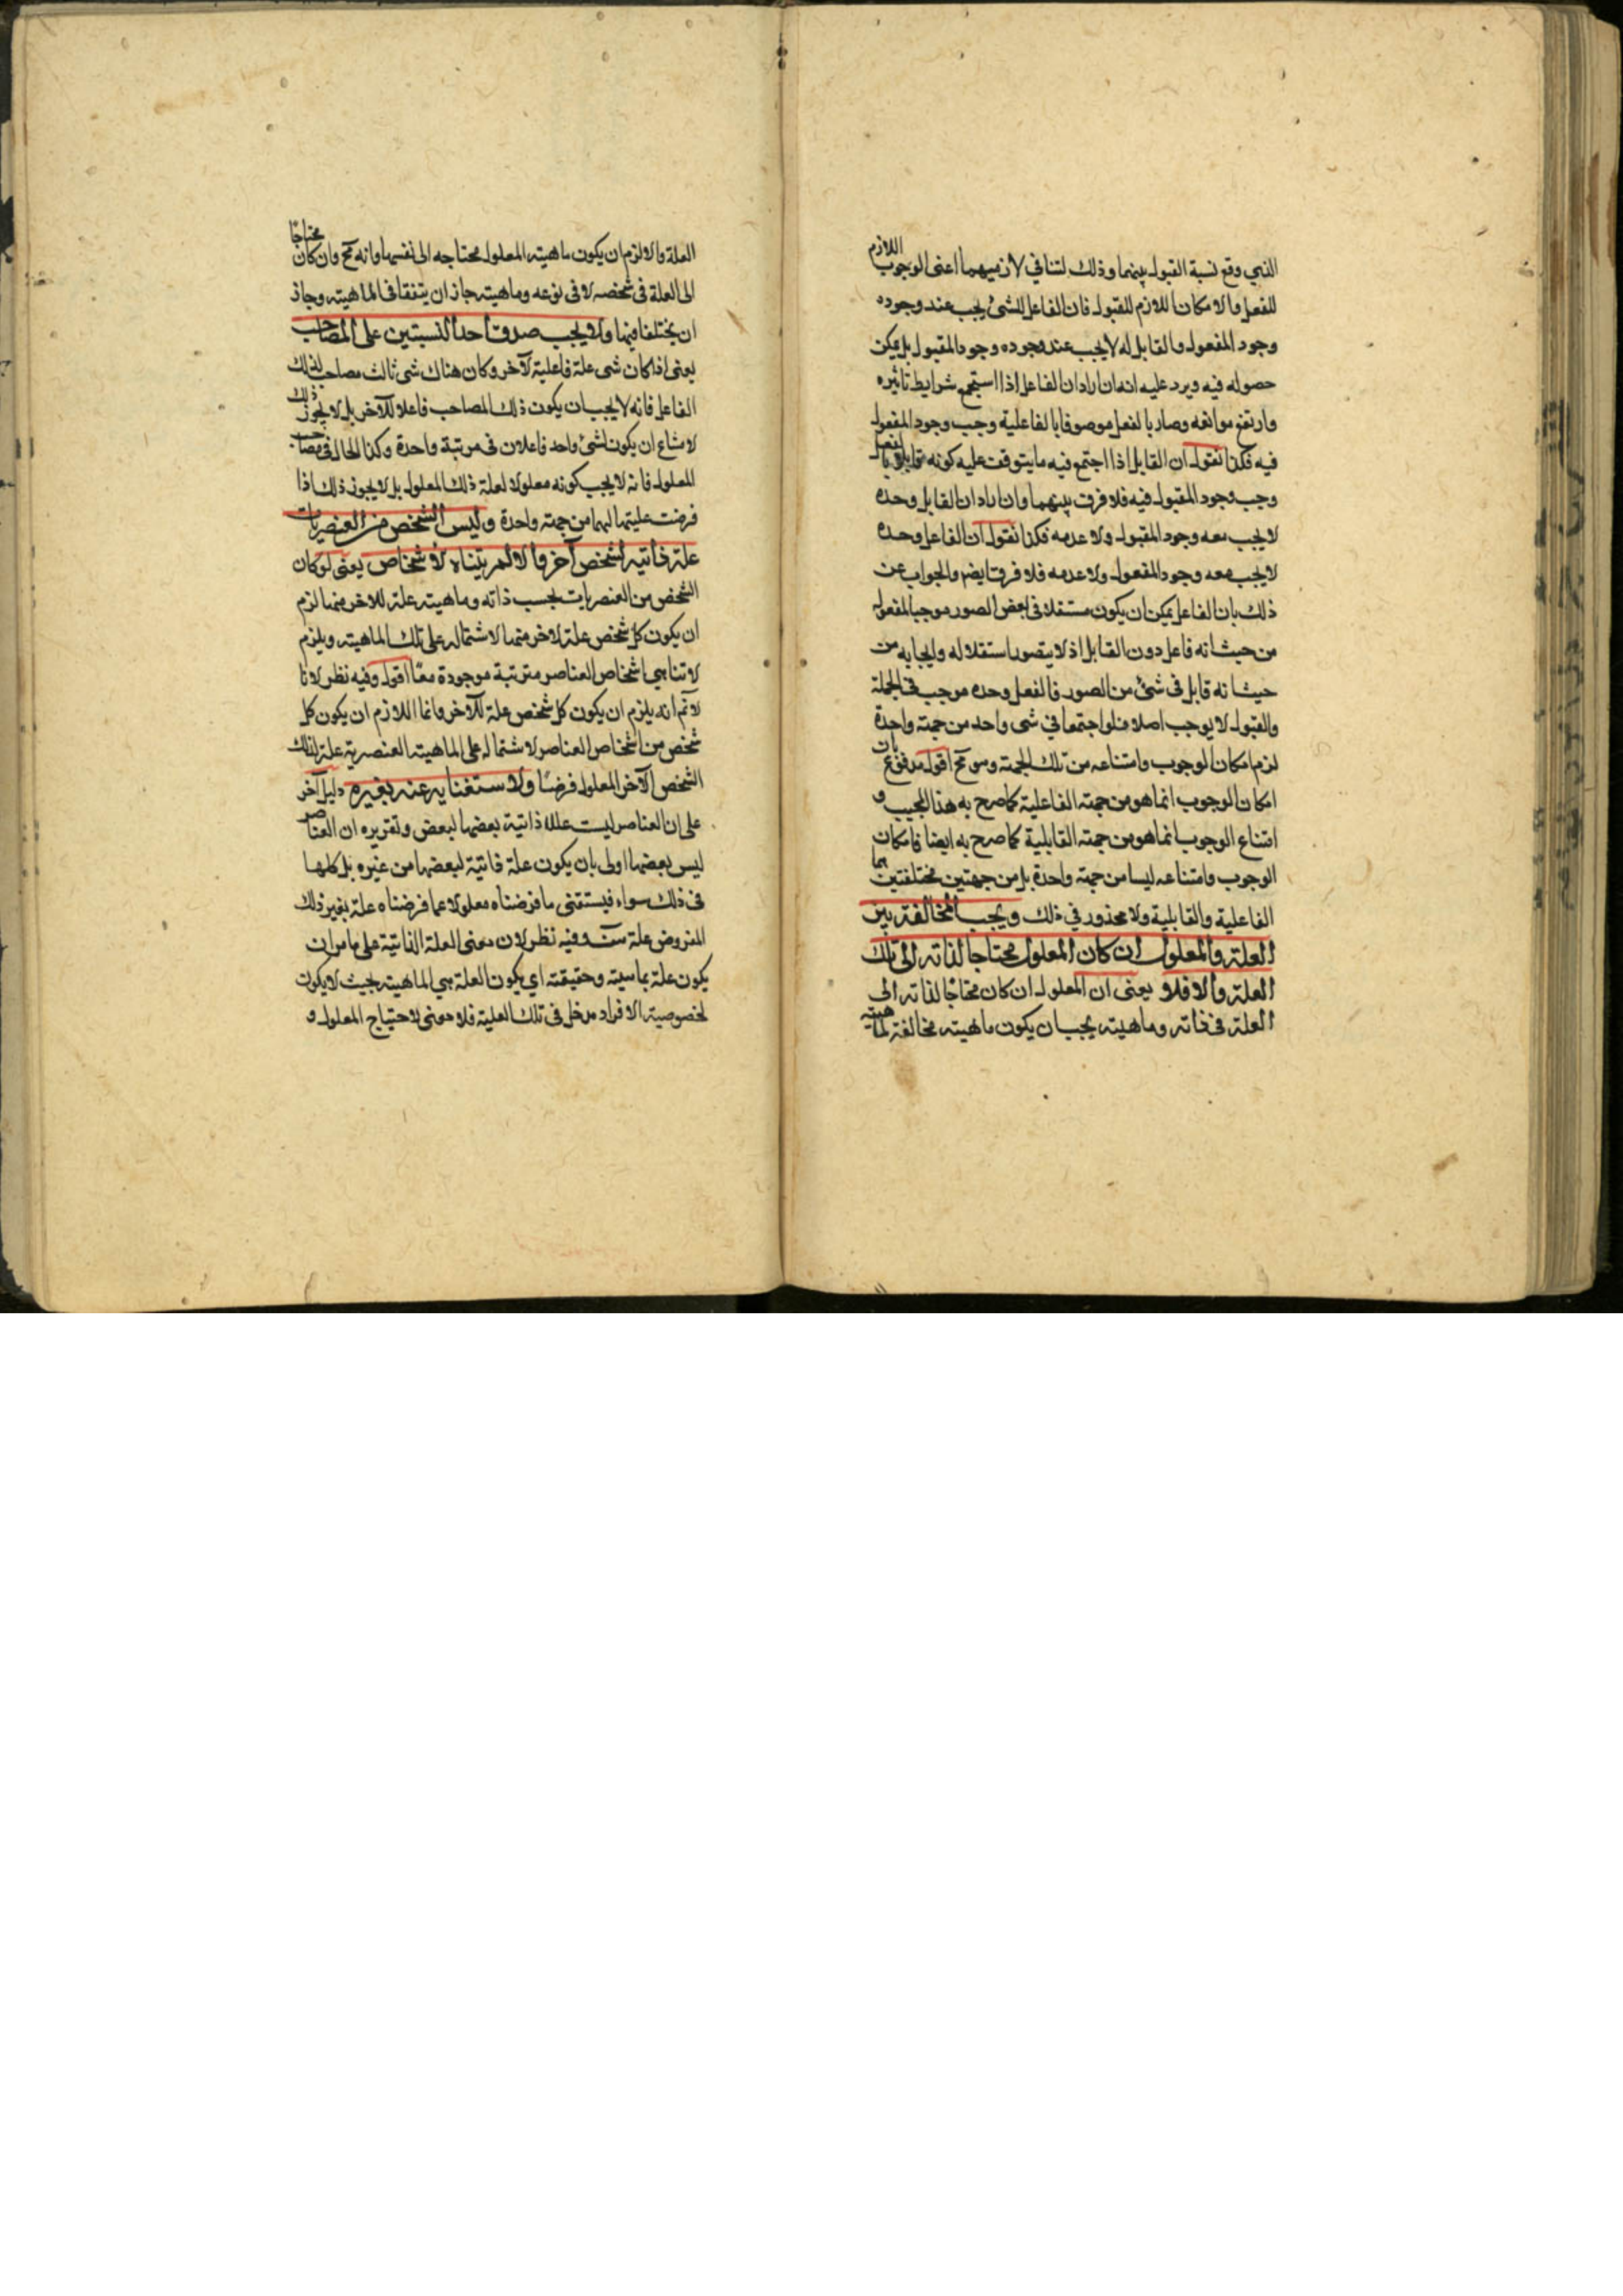 الذي وقع نسبة القبول بينهما وذلك لتنافي لازميهما اعنى الوجوب اللازم
للفعل والامكان اللازم للقبول فان الفاعل للشئ يجب عند وجوده
وجود المفعول والقابل له لا يجب عند وجوده وجود المقبول بل يمكن
حصوله فيه ويرد عليه انه ان اراد ان الفاعل اذا استجمع شرايط تاثيره
وارتفع موانعه وصار بالفعل موصوفا بالفاعلية وجب وجود المفعول
فيه فكذا نقول ان القابل اذا اجتمع فيه ما يتوقف عليه كونه قابلا بالفعل
وجب وجود المقبول فيه فلا فرق بينهما وان اراد ان القابل وحده
لا يجب معه وجود المقبول ولا عدمه فكذا نقول ان الفاعل وحده
لا يجب معه وجود المفعول ولا عدمه فلا فرق ايضم والجواب عن
ذلك بان الفاعل يمكن ان يكون مستقلا فى بعض الصور موجبا لمفعوله
من حيث انه فاعل دون القابل اذ لا يتصور استقلاله وايجابه من
حيث انه قابل فى شئ من الصور فالفعل وحده موجب فى الجملة
والقبول لا يوجب اصلا فلو اجتمعا في شى واحد من جهة واحدة
لزم امكان الوجوب وامتناعه من تلك الجهة وهو مح اقول مدفوع بان
امكان الوجوب انما هو من جهة الفاعلية كما صرح به هذا المجيب و
امتناع الوجوب انما هو من جهة القابلية كما صرح به ايضا فامكان
الوجوب وامتناعه ليسا من جهة واحدة بل من جهتين مختلفتين هما
الفاعلية والقابلية ولا محذور في ذلك ويجب المخالفة بين
العلة والمعلول ان كان المعلول محتاجا لذاته الى تلك
العلة والا فلا يعنى ان المعلول ان كان محتاجا لذاته الى
العلة فى ذاته وماهيته يجب ان يكون ماهيته مخالفة لماهية
العلة والا لزم ان يكون ماهية المعلول محتاجه الى نفسها وانه مح وان كان محتاجا
الى العلة فى شخصه لا فى نوعه وماهيته جاز ان يتفقا فى الماهية وجاز
ان يختلفا فيها ولا يجب صدق احد النسبتين على المصاحب
يعنى اذا كان شى علة فاعلية لآخر وكان هناك شى ثالث مصاحب لذلك
الفاعل فانه لا يجب ان يكون ذلك المصاحب فاعلا للآخر بل لا يجوز ذلك
لامتناع ان يكون لشئ واحد فاعلان فى مرتبة واحدة وكذا الحال فى مصاحب
المعلول فانه لا يجب كونه معلولا لعلة ذلك المعلول بل لا يجوز ذلك اذا
فرضت عليتها لهما من جهة واحدة وليس الشخص من العنصريات
علة ذاتية لشخص آخر والا لم يتناه الاشخاص يعنى لو كان
الشخص من العنصريات بحسب ذاته وماهيته علة للاخر منها لزم
ان يكون كل شخص علة لاخر منها لاشتماله على تلك الماهية ويلزم
لا تناهي اشخاص العناصر مترتبة موجودة معا اقول وفيه نظر لانا
لا نم انه يلزم ان يكون كل شخص علة للآخر وانما اللازم ان يكون كل
شخص من اشخاص العناصر لاشتماله على الماهية العنصرية علة لذلك
الشخص الآخر المعلول فرضا ولاستغنايه عنه بغيره دليل آخر
على ان العناصر ليست عللا ذاتية بعضها لبعض وتقريره ان العناصر
ليس بعضها اولى بان يكون علة ذاتية لبعضها من غيره بل كلها
فى ذلك سواء فيستغنى ما فرضناه معلولا عما فرضناه علة بغير ذلك
المفروض علة وفيه نظر لان معنى العلة الذاتية على ما مر ان
يكون علة بماهيته وحقيقته اي يكون العلة هي الماهية بحيث لا يكون
لخصوصية الافراد مدخل فى تلك العلية فلا معنى لاحتياج المعلول و